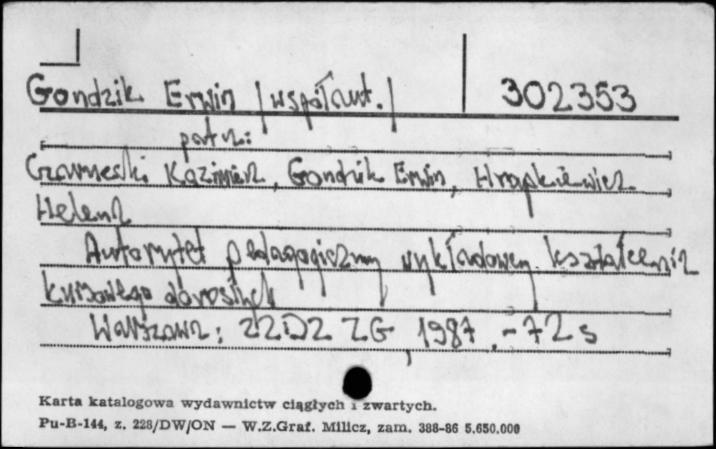 Gondzik Erwin /współaut./ 302353
patrz:
Czarnecki Kazimierz, Gondzik Erwin, Hrapkiewicz
Helena
Autorytet pedagogiczny wykładowcy kształcenia
kursowego dorosłych
Warszawa: ZZDZ ZG, 1987. - 72 s
Karta katalogowa wydawnictw ciągłych i zwartych.
Pu-B-144, z. 228/DW/ON — W.Z.Graf. Milicz, zam. 388-86 5.650.000